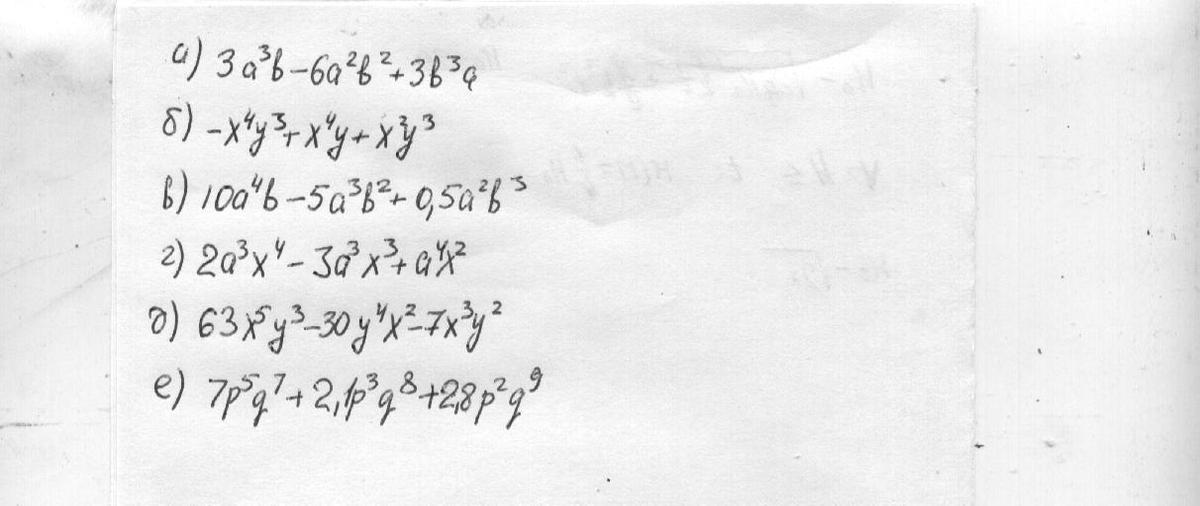 а) 3a³b-6a²b²+3b³a
б) -x⁴y³+x⁴y+x²y³
в) 10a⁴b-5a³b²+0,5a²b³
г) 2a³x⁴-3a³x³+a⁴x²
д) 63x⁵y³-30y⁴x²-7x³y²
е) 7p⁵q⁷+2,1p³q⁸+2,8p²q⁹